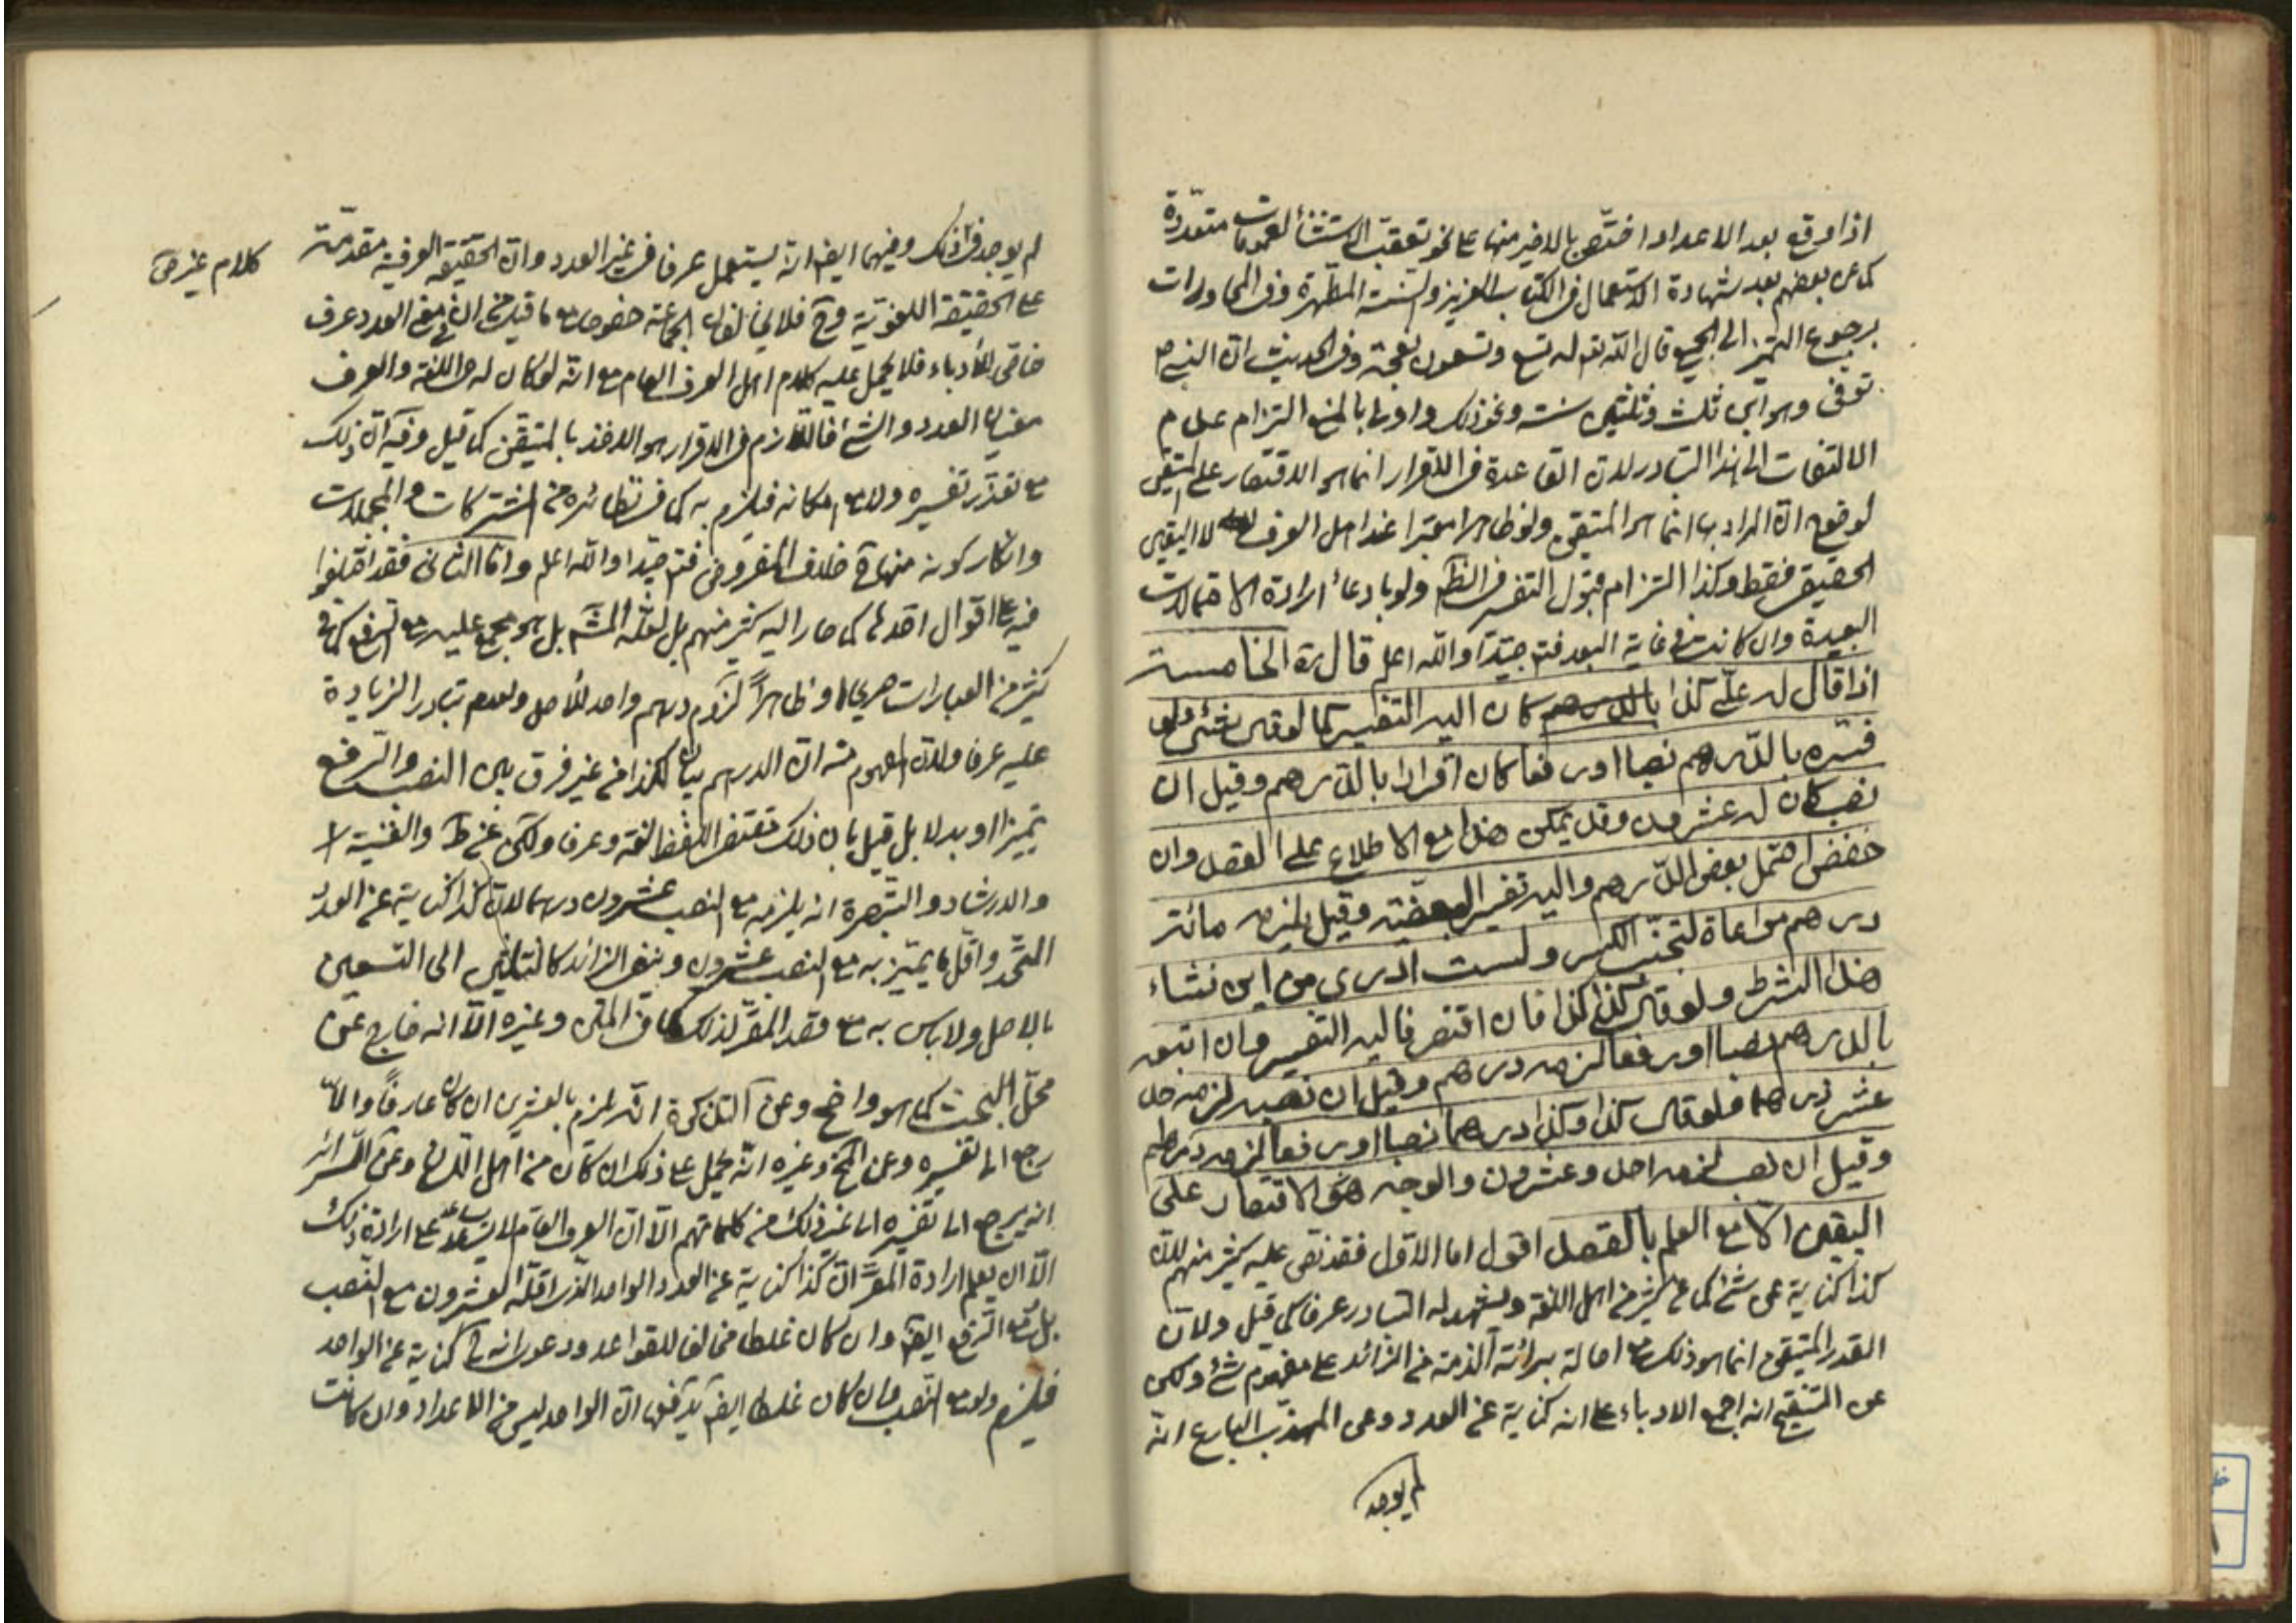 اذا وقع بعد الاعداد اختص بالاخير منها على نحو تعقب الاستثناء لعمومات متعددة
كما عن بعضهم بعد شهادة الاستعمال فى الكتاب العزيز والسنة المطهرة وفى المحاورات
برجوع التميز الى الجميع قال الله تع له تسع وتسعون نعجة وفى الحديث ان النبى ص
توفى وهو ابن ثلث وثلثين سنة ونحو ذلك واولها بالمنع التزام عدم
الالتفات الى هذا التبادر لان القاعدة فى الاقرار انما هو الاقتصار على المتيقن
لوضوح ان المراد بها انما هو المتيقن ولو ظاهرا معتبرا عند اهل العرف لا اليقين
الحقيقى فقط وكذا التزام قبول التفسير فى النظم ولو بادعاء ارادة الاحتمالات
البعيدة وان كانت فى غاية البعد فتم جيدا والله اعلم قال ره الخامسة
اذا قال له على كذا كان اليه التفسير كما لو قال شئ ولو
فسره بالدرهم نصبا او رفعا كان اقرارا بالدرهم وقيل ان
نصب كان له عشرون وقد يمكن هذا مع الاطلاع على القصد وان
خفض احتمل بعض الدرهم واليه تفسير البعضية وقيل يلزمه مائة
درهم مراعاة لتجنب الكسر ولست ادرى من اين نشاء
هذا الشرط ولو قال كذا كذا فان اقتصر فاليه التفسير وان اتبعه
بالدرهم نصبا او رفعا لزمه درهم وقيل ان نصب لزمه احد
عشر درهما ولو قال كذا وكذا درهما نصبا او رفعا لزمه درهم
وقيل ان نصب لزمه احد وعشرون والوجه هو الاقتصار على
اليقين الا مع العلم بالقصد اقول اما الاول فقد نص عليه كثير منهم لان
كذا كناية عن شئ كما عن كثير من اهل اللغة ويشهد له التبادر عرفا كما قيل ولان
القدر المتيقن انما هو ذلك مع اصالة برائة الذمة من الزائد على مفهوم شئ ولكن
عن التنقيح انه اجمع الادباء على انه كناية عن العدد وعن المهذب البارع انه
لم يوجد
لم يوجد فى ذلك وفيهما ايضا انه يستعمل عرفا فى غير العدد وان الحقيقة العرفية مقدمة
كلام غيره فى
على الحقيقة اللغوية وح فلا يخالف الجماعة خصوصا مع ما قيل من ان فى العدد عرف
خاص للادباء فلا يحمل عليه كلام اهل العرف العام مع انه لو كان له فى اللغة والعرف
معنيان العدد والشئ فاللازم فى الاقرار هو الاخذ بالمتيقن كما قيل وفيه ان ذلك
مع تعذر تفسيره ولا مع امكانه فيلزم به كما فى نظائره من المشتركات والمجملات
وانكار كونه منها ح خلاف المفروض فتم جيدا والله اعلم واما الثانى فقد اختلفوا
فيه على اقوال احدها كما صار اليه كثير منهم بل لعله المشه بل هو مجمع عليه مع الرفع كما فى
كثير من العبارات صريحا او ظاهرا لزوم درهم واحد للاصل ولعدم تبادر الزيادة
عليه عرفا ولان المفهوم منه ان الدرهم بيان لكذا من غير فرق بين النصب والرفع
تميزا او بدلا بل قيل بان ذلك مقتضى اللفظ لغة وعرفا ولكن عن ط والغنية
والارشاد والتبصرة انه يلزمه مع النصب عشرون درهما لان كذا كناية عن العدد
المتحد واقل ما يميز به مع النصب عشرون وينفى الزائد كالثلثين الى التسعين
بالاصل ولا باس به مع قصد المقر لذلك كما فى المتن وغيره الا انه خارج عن
محل البحث كما هو واضح وعن التذكرة انه لزم بالعشرين ان كان عارفا والا
رجع الى تفسيره وعن المخ وغيره انه يحمل على ذلك ان كان من اهل اللسان وعن السرائر
انه يرجع الى تفسيره الى غير ذلك من كلماتهم الا ان العرف العام لا يساعد على ارادة ذلك
الا ان يعلم ارادة المقر ان كذا كناية عن العدد الواحد الذى اقله العشرون مع النصب
بل مع الرفع ايضا وان كان غلطا مخالفا للقواعد ودعوى انه ح كناية عن الواحد
فيلزم ولو مع النصب وان كان غلطا ايضا يدفعها ان الواحد ليس من الاعداد وان كانت